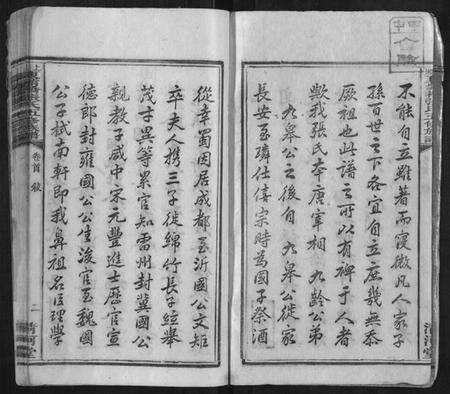 不能自立雖著而寖微凡人家子
孫百世之下各宜自立庶幾無忝
厥祖也此譜之可以有裨于人者
歟我張氏本唐宰相 九齡公弟
九皋公之後自 九皋公徙家
長安至璘仕僖宗時為國子祭酒
從幸蜀因居成都至沂國公文矩
卒夫人携三子徙綿竹長子紘舉
茂才異等累官知雷州封冀國公
親教子咸中宋元豐進士歷官宣
德郎封雍國公公生浚官至魏國
公子栻南軒即我鼻祖名臣理學
卷首 敘
二
清河堂
清河堂